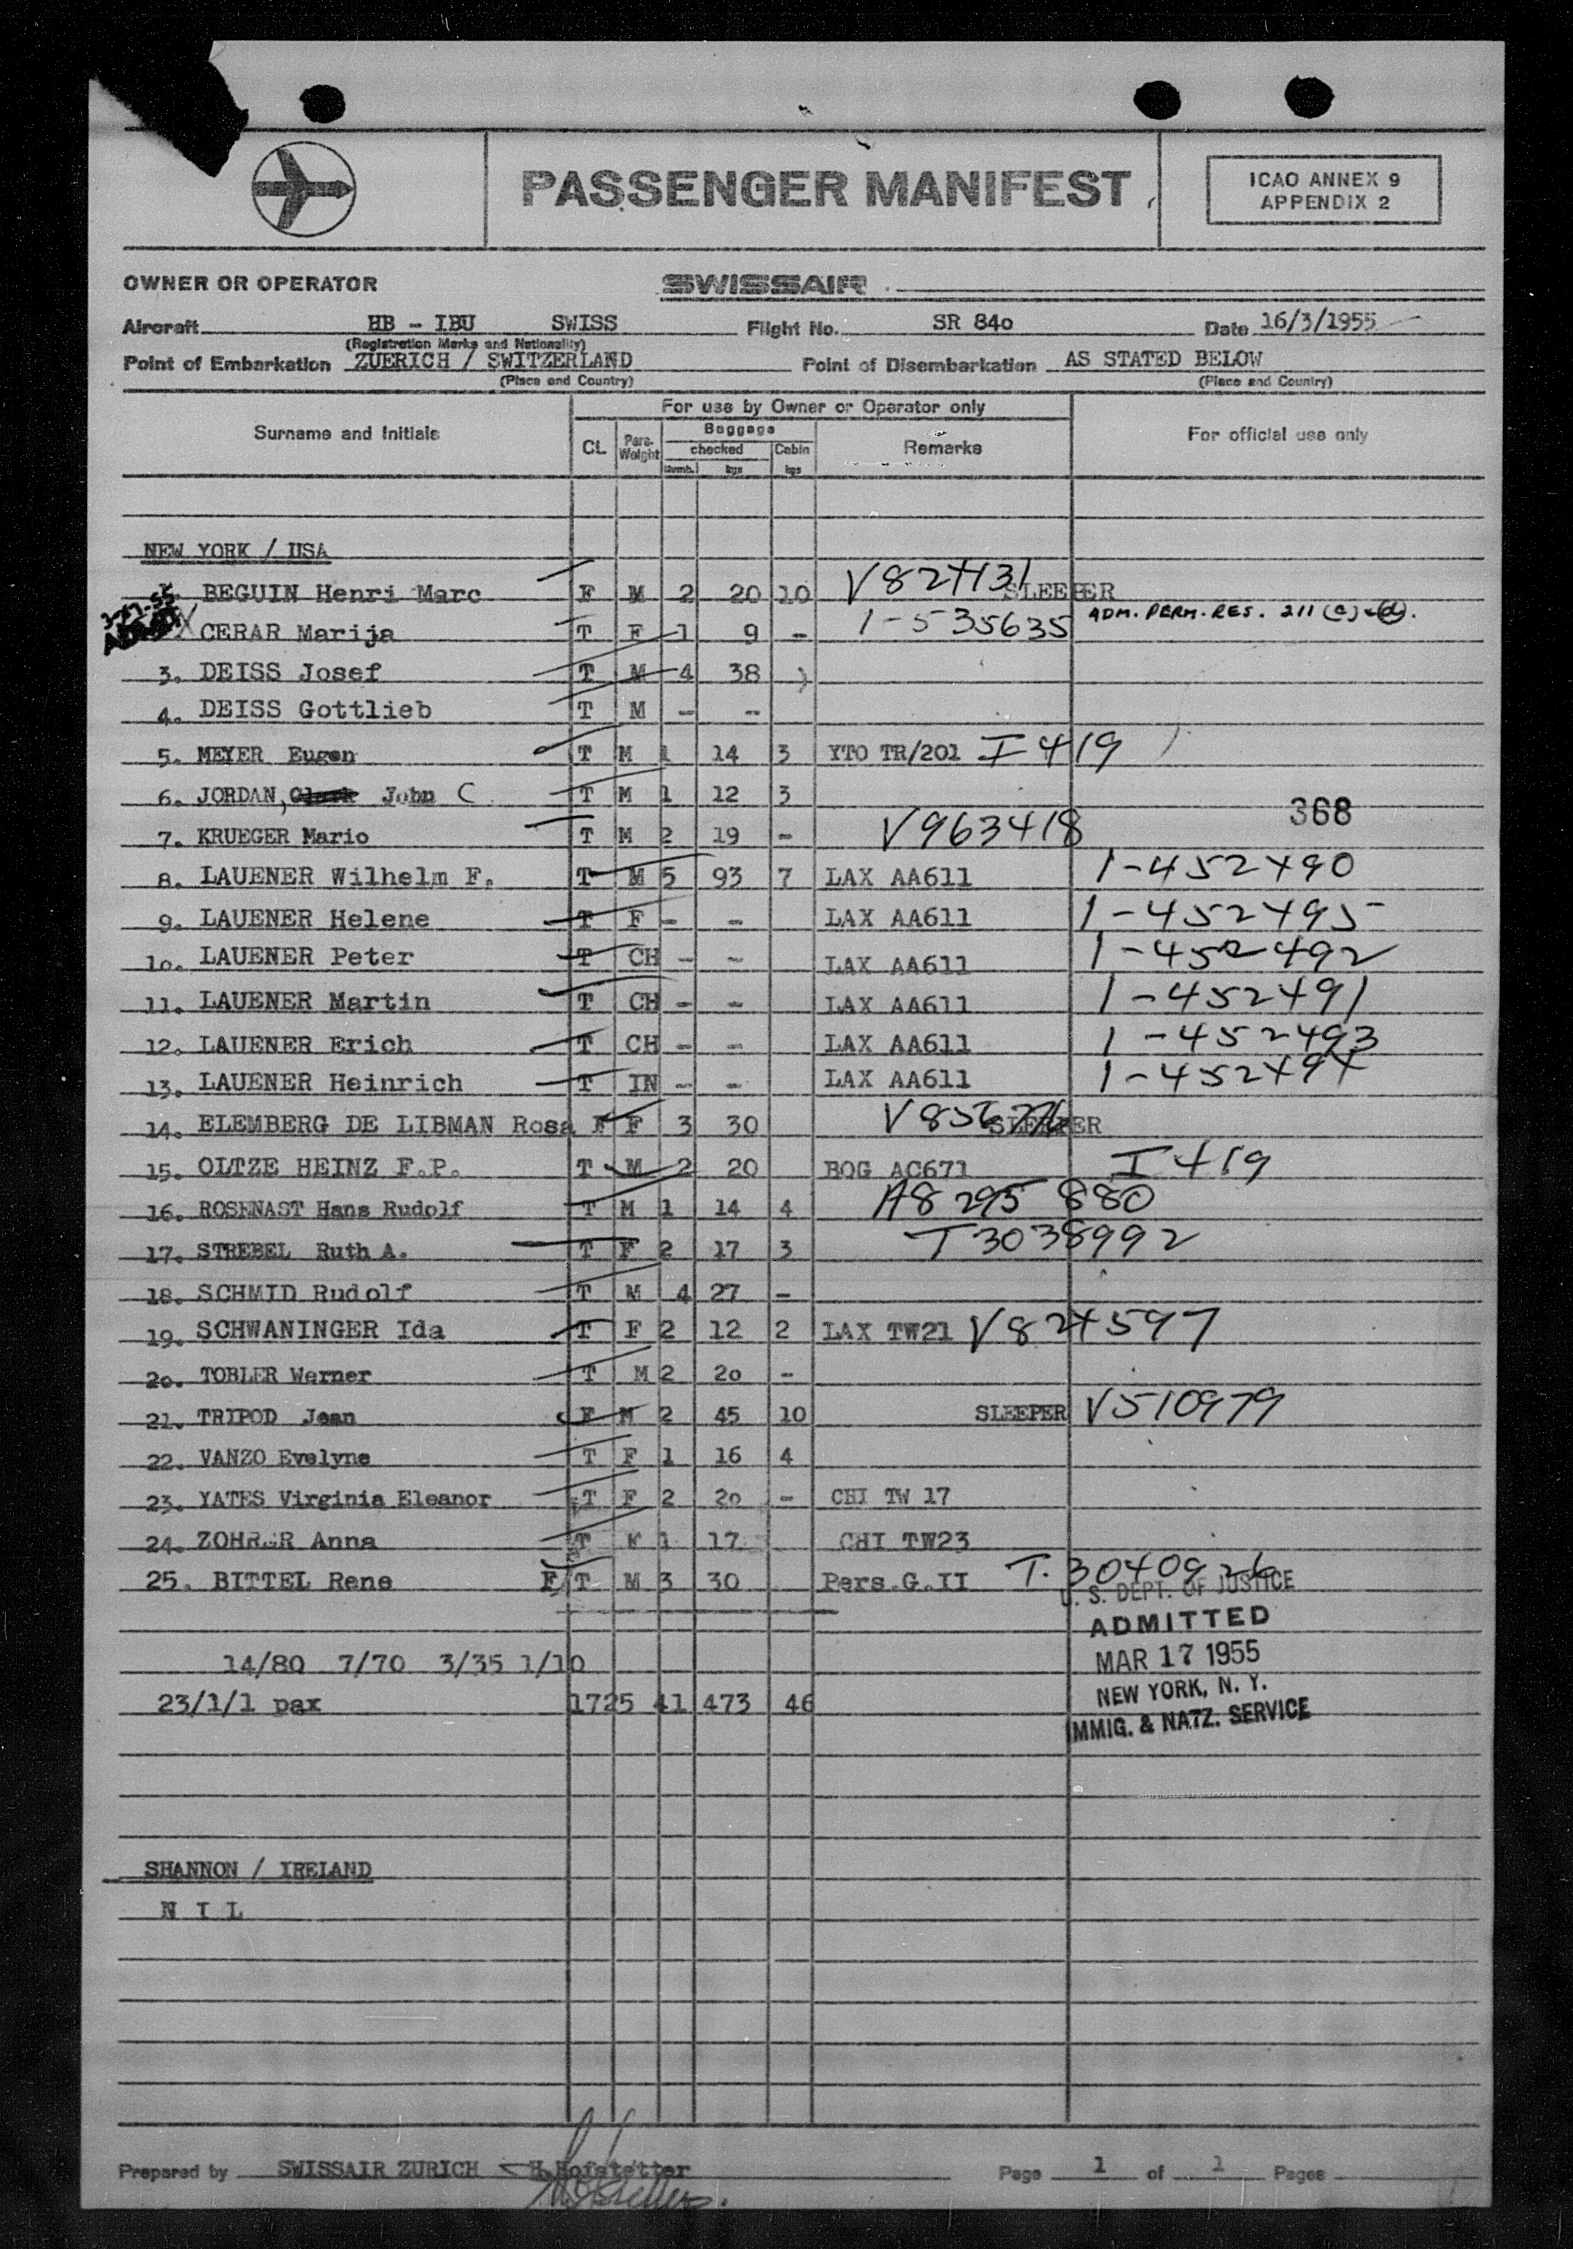 PASSENGER MANIFEST
ICAO ANNEX 9
APPENDIX 2
OWNER OR OPERATOR SWISSAIR
Aircraft HB - IBU SWISS Flight No. SR 840 Date 16/3/1955
(Registration Marks and Nationality)
Point of Embarkation ZUERICH / SWITZERLAND Point of Disembarkation AS STATED BELOW
(Place and Country) (Place and Country)
For use by Owner or Operator only
Surname and Initials CL Pers. Weight Baggage checked Numb. kgs Cabin kgs Remarks For official use only
NEW YORK / USA
BEGUIN Henri Marc F M 2 20 10 V824131 SLEEPER
3-17-55
CERAR Marija T F 1 9 - 1-535635 ADM. PERM. RES. 211 (c) & (d).
3. DEISS Josef T M 4 38 )
4. DEISS Gottlieb T M - -
5. MEYER Eugen T M 1 14 3 YTO TR/201 I 419
6. JORDAN, Clark John C T M 1 12 3
368
7. KRUEGER Mario T M 2 19 - V963418
8. LAUENER Wilhelm F. T M 5 93 7 LAX AA611 1-452490
9. LAUENER Helene T F - - LAX AA611 1-452495
10. LAUENER Peter T CH - - LAX AA611 1-452492
11. LAUENER Martin T CH - - LAX AA611 1-452491
12. LAUENER Erich T CH - - LAX AA611 1-452493
13. LAUENER Heinrich T IN - - LAX AA611 1-452494
14. ELEMBERG DE LIBMAN Rosa F F 3 30 SLEEPER
15. OLTZE HEINZ F.P. T M 2 20 BOG AC671 I 419
16. ROSENAST Hans Rudolf T M 1 14 4 A8 295 880
17. STREBEL Ruth A. T F 2 17 3 T3038992
18. SCHMID Rudolf T M 4 27 -
19. SCHWANINGER Ida T F 2 12 2 LAX TW21 V824597
20. TOBLER Werner T M 2 20 -
21. TRIPOD Jean F M 2 45 10 SLEEPER V510979
22. VANZO Evelyne T F 1 16 4
23. YATES Virginia Eleanor T F 2 20 - CHI TW 17
24. ZOHRER Anna T F 1 17 CHI TW23
25. BITTEL Rene F/T M 3 30 Pers.G.II T. 3040926
U. S. DEPT. OF JUSTICE
ADMITTED
14/80 7/70 3/35 1/10 MAR 17 1955
23/1/1 pax 1725 41 473 46 NEW YORK, N. Y.
IMMIG. & NATZ. SERVICE
SHANNON / IRELAND
N I L
Prepared by SWISSAIR ZURICH H.Hofstetter Page 1 of 1 Pages